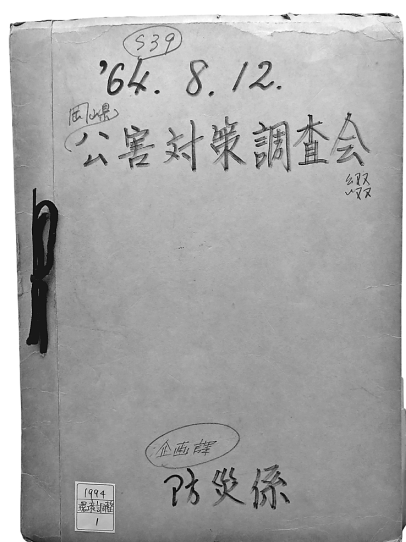 S39
'64. 8. 12.
岡山県
公害対策調査会
綴
企画課
防災係
1994
環境調整
1